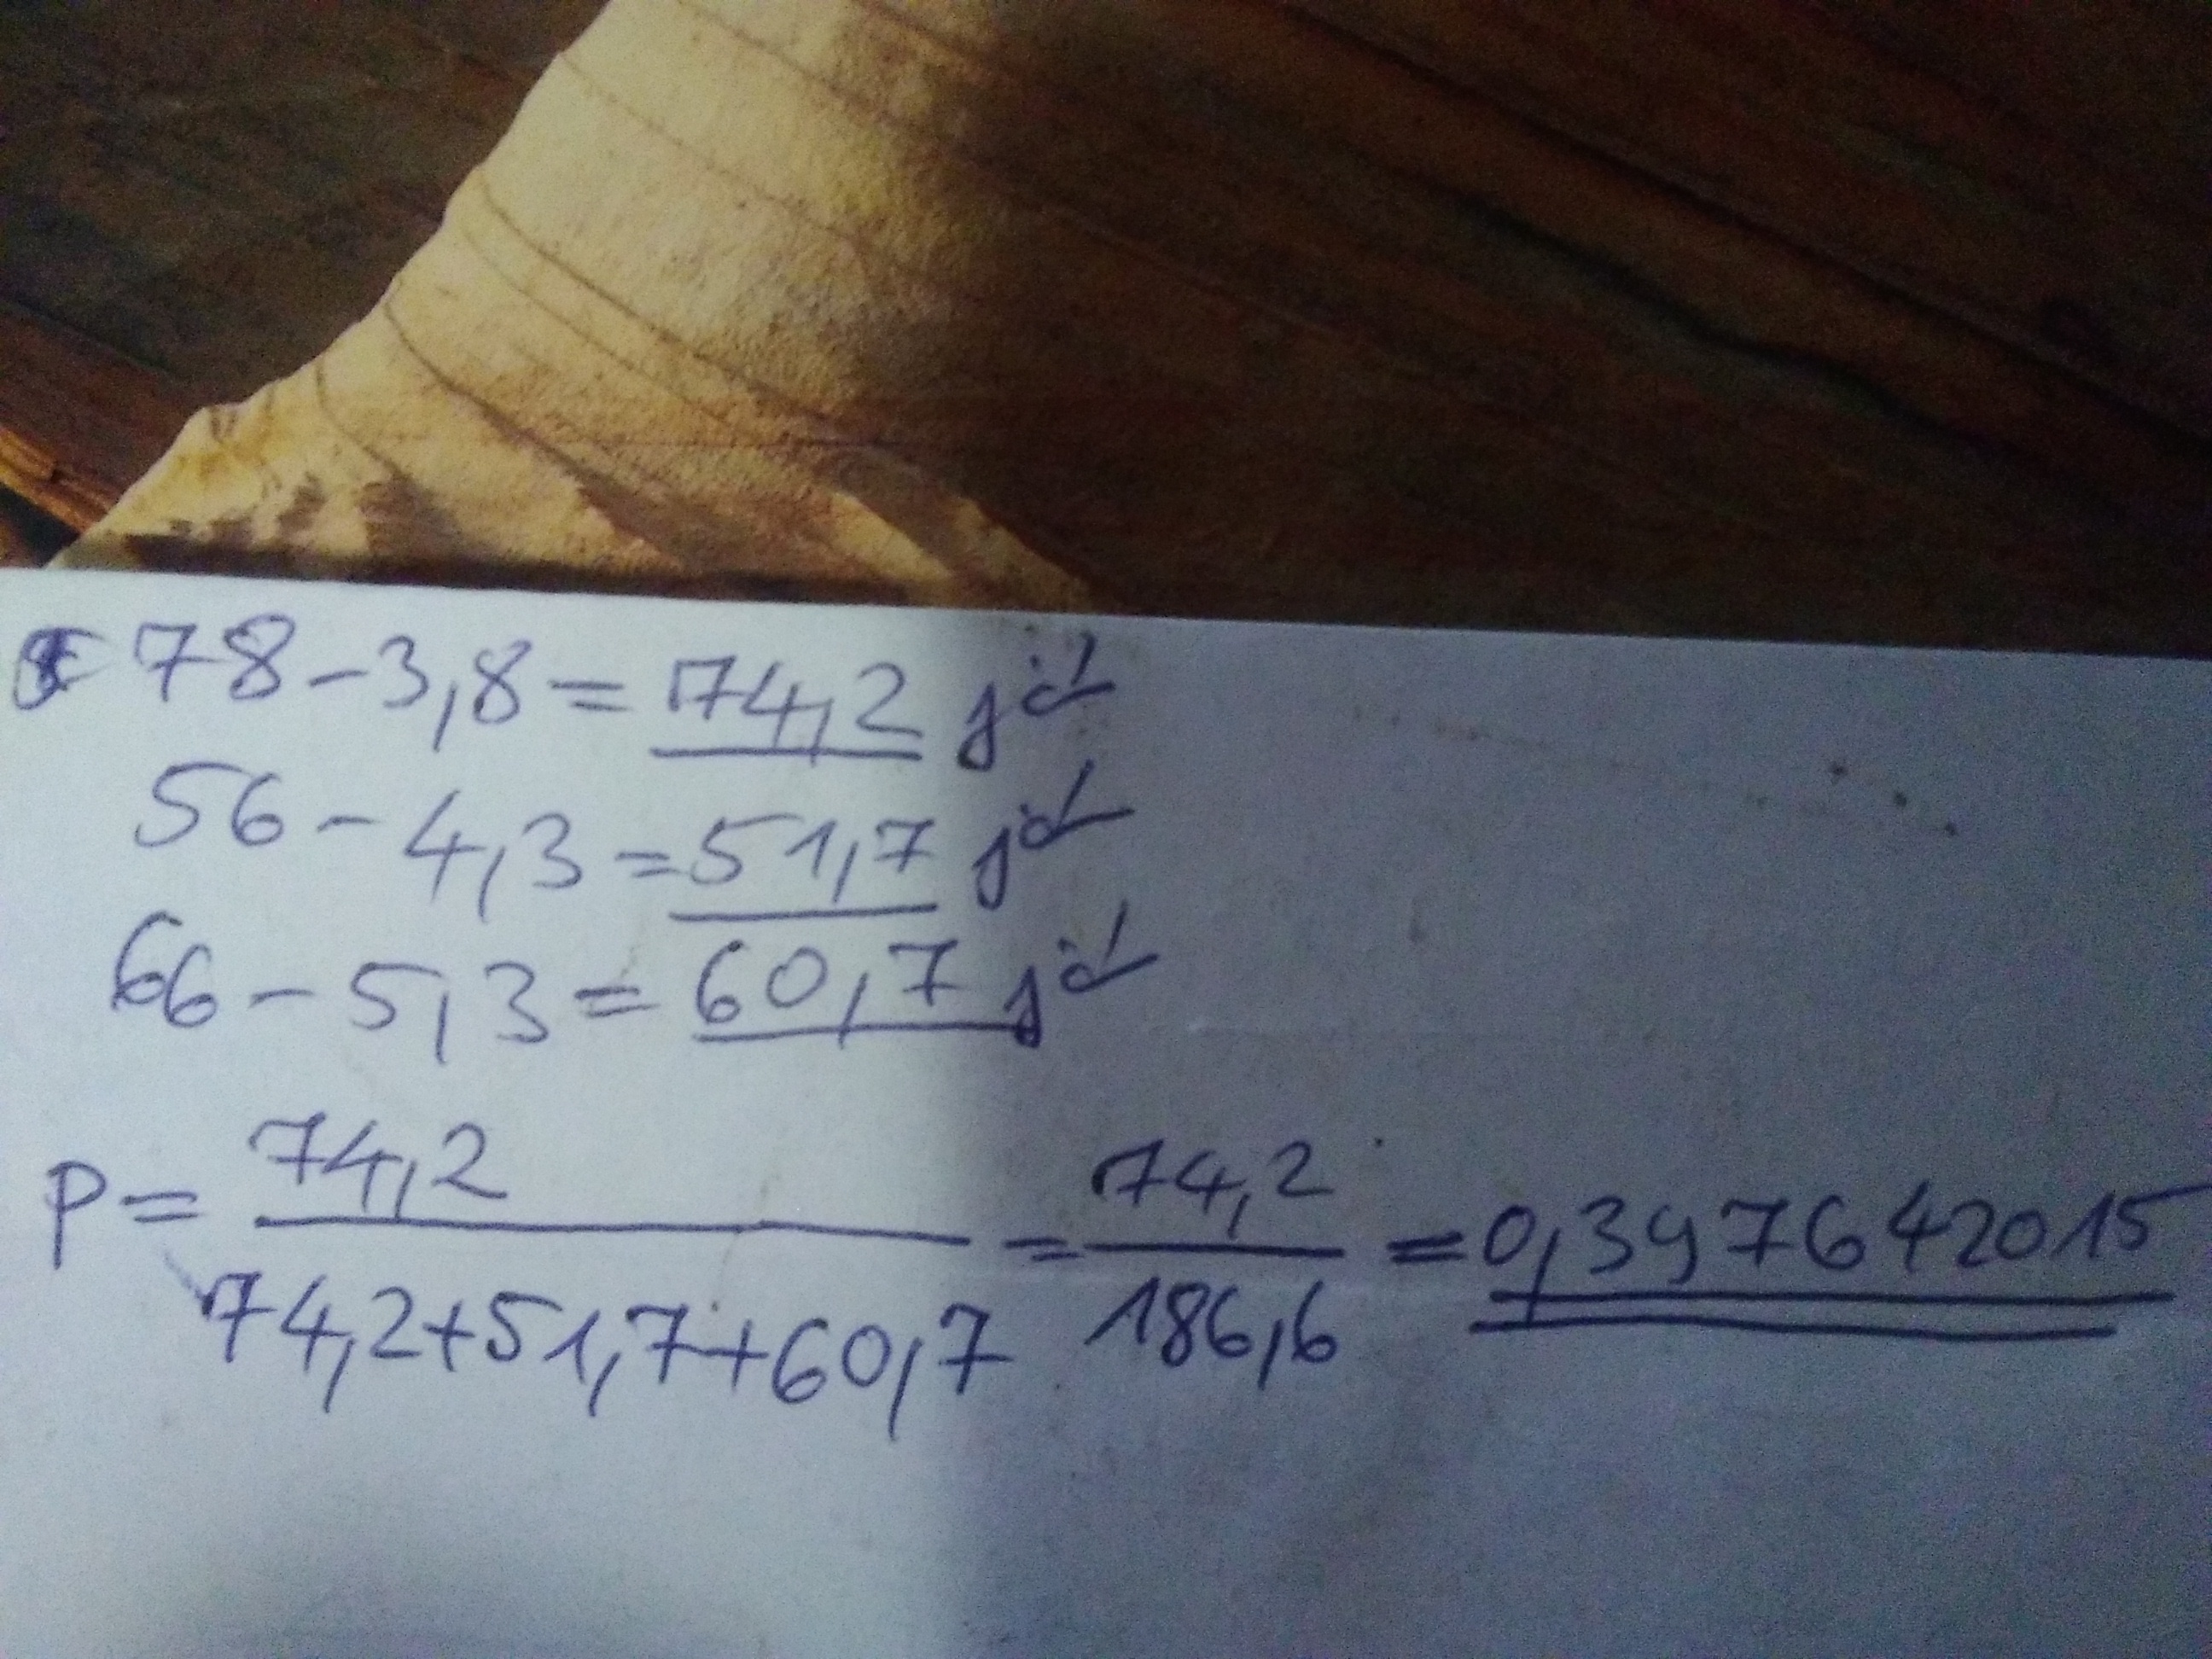 78-3,8=74,2 jd
56-4,3=51,7 jd
66-5,3=60,7 jd
74,2
P= = 74,2 = 0,397642015
74,2+51,7+60,7 186,6